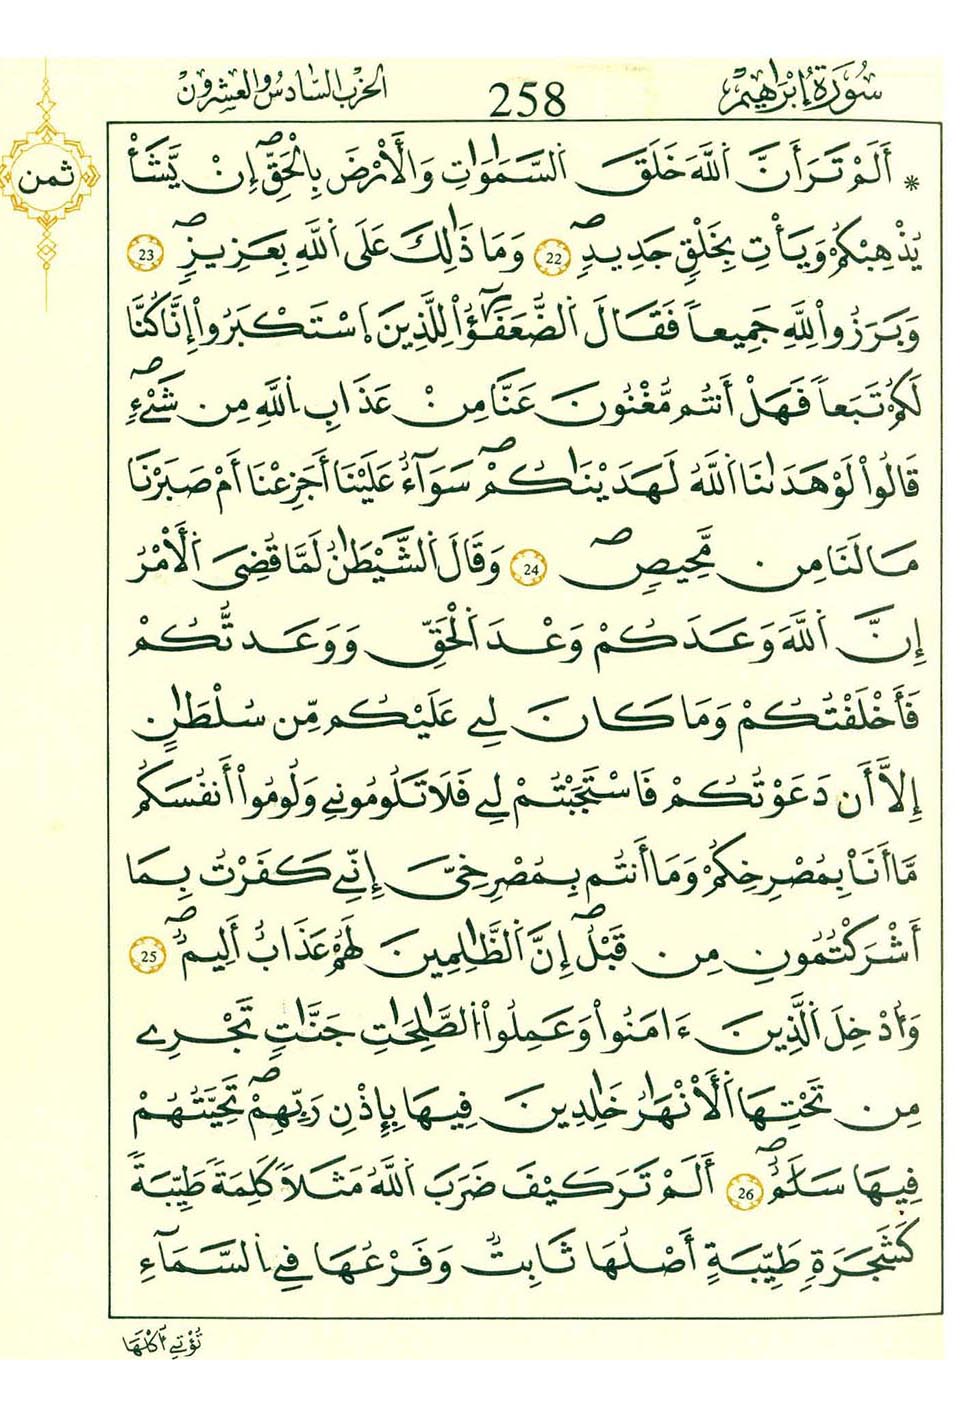 سُورَةُ إِبْرَاهِيمَ
258
الحزب السادس والعشرون
ثمن
* أَلَمْ تَرَ أَنَّ اَللَّهَ خَلَقَ اَلسَّمَٰوَٰتِ وَالْأَرْضَ بِالْحَقِّۖ إِنْ يَّشَأْ
يُذْهِبْكُمْ وَيَأْتِ بِخَلْقٖ جَدِيدٖۖ 22 وَمَا ذَٰلِكَ عَلَى اَللَّهِ بِعَزِيزٖۖ 23
وَبَرَزُواْ لِلهِ جَمِيعاٗ فَقَالَ اَلضُّعَفَٰٓؤُاْ لِلَّذِينَ اَسْتَكْبَرُواْ إِنَّا كُنَّا
لَكُمْ تَبَعاٗ فَهَلْ أَنتُم مُّغْنُونَ عَنَّا مِنْ عَذَابِ اِللَّهِ مِن شَيْءٖۖ
قَالُواْ لَوْ هَدَىٰنَا اَللَّهُ لَهَدَيْنَٰكُمْۖ سَوَآءٌ عَلَيْنَا أَجَزِعْنَا أَمْ صَبَرْنَا
مَا لَنَا مِن مَّحِيصٖۖ 24 وَقَالَ اَلشَّيْطَٰنُ لَمَّا قُضِيَ اَلْأَمْرُ
إِنَّ اَللَّهَ وَعَدَكُمْ وَعْدَ اَلْحَقِّ وَوَعَدتُّكُمْ
فَأَخْلَفْتُكُمْ وَمَا كَانَ لِے عَلَيْكُم مِّن سُلْطَٰنٍ
إِلَّا أَن دَعَوْتُكُمْ فَاسْتَجَبْتُمْ لِے فَلَا تَلُومُونِے وَلُومُواْ أَنفُسَكُم
مَّا أَنَا۠ بِمُصْرِخِكُمْ وَمَا أَنتُم بِمُصْرِخِيَّ إِنِّے كَفَرْتُ بِمَا
أَشْرَكْتُمُونِ مِن قَبْلُۖ إِنَّ اَلظَّٰلِمِينَ لَهُمْ عَذَابٌ أَلِيمٞۖ 25
وَأُدْخِلَ اَلَّذِينَ ءَامَنُواْ وَعَمِلُواْ اُلصَّٰلِحَٰتِ جَنَّٰتٖ تَجْرِے
مِن تَحْتِهَا اَلْأَنْهَٰرُ خَٰلِدِينَ فِيهَا بِإِذْنِ رَبِّهِمْۖ تَحِيَّتُهُمْ
فِيهَا سَلَٰمٌۖ 26 أَلَمْ تَرَ كَيْفَ ضَرَبَ اَللَّهُ مَثَلاٗ كَلِمَةٗ طَيِّبَةٗ
كَشَجَرَةٖ طَيِّبَةٍ أَصْلُهَا ثَابِتٞ وَفَرْعُهَا فِے اِلسَّمَآءِ
تُؤْتِے أُكْلَهَا